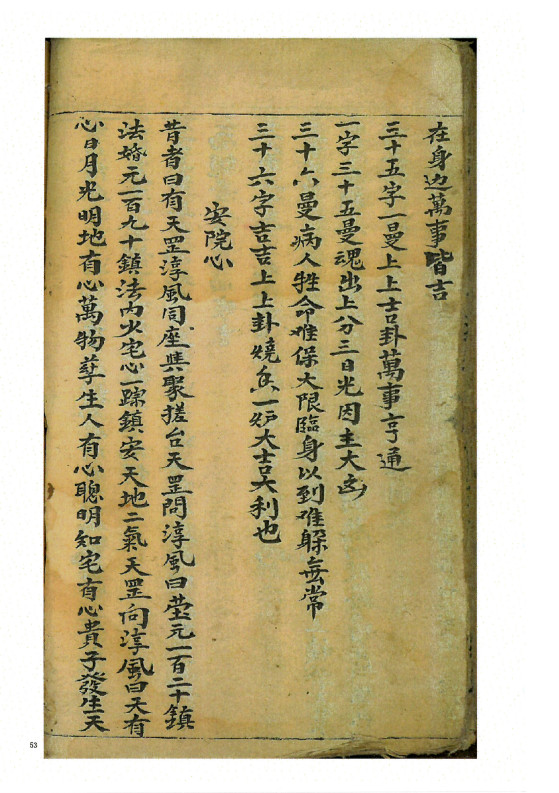 在身边萬事皆吉
三十五字一曼上上吉卦萬事亨通
一字三十五曼魂出上分三日光因主大凶
三十六曼病人牲命难保大限臨身以到难躲無常
三十六字吉吉上上卦燒香一炉大吉大利也
安院心
昔者曰有天罡淳風同座與聚搓台天罡問淳風曰茔元一百二十鎮
法婚元一百九十鎮法内火宅心一踪鎮安天地二氣天罡向淳風曰天有
心日月光明地有心萬物孳生人有心聰明知宅有心貴子發生天
53